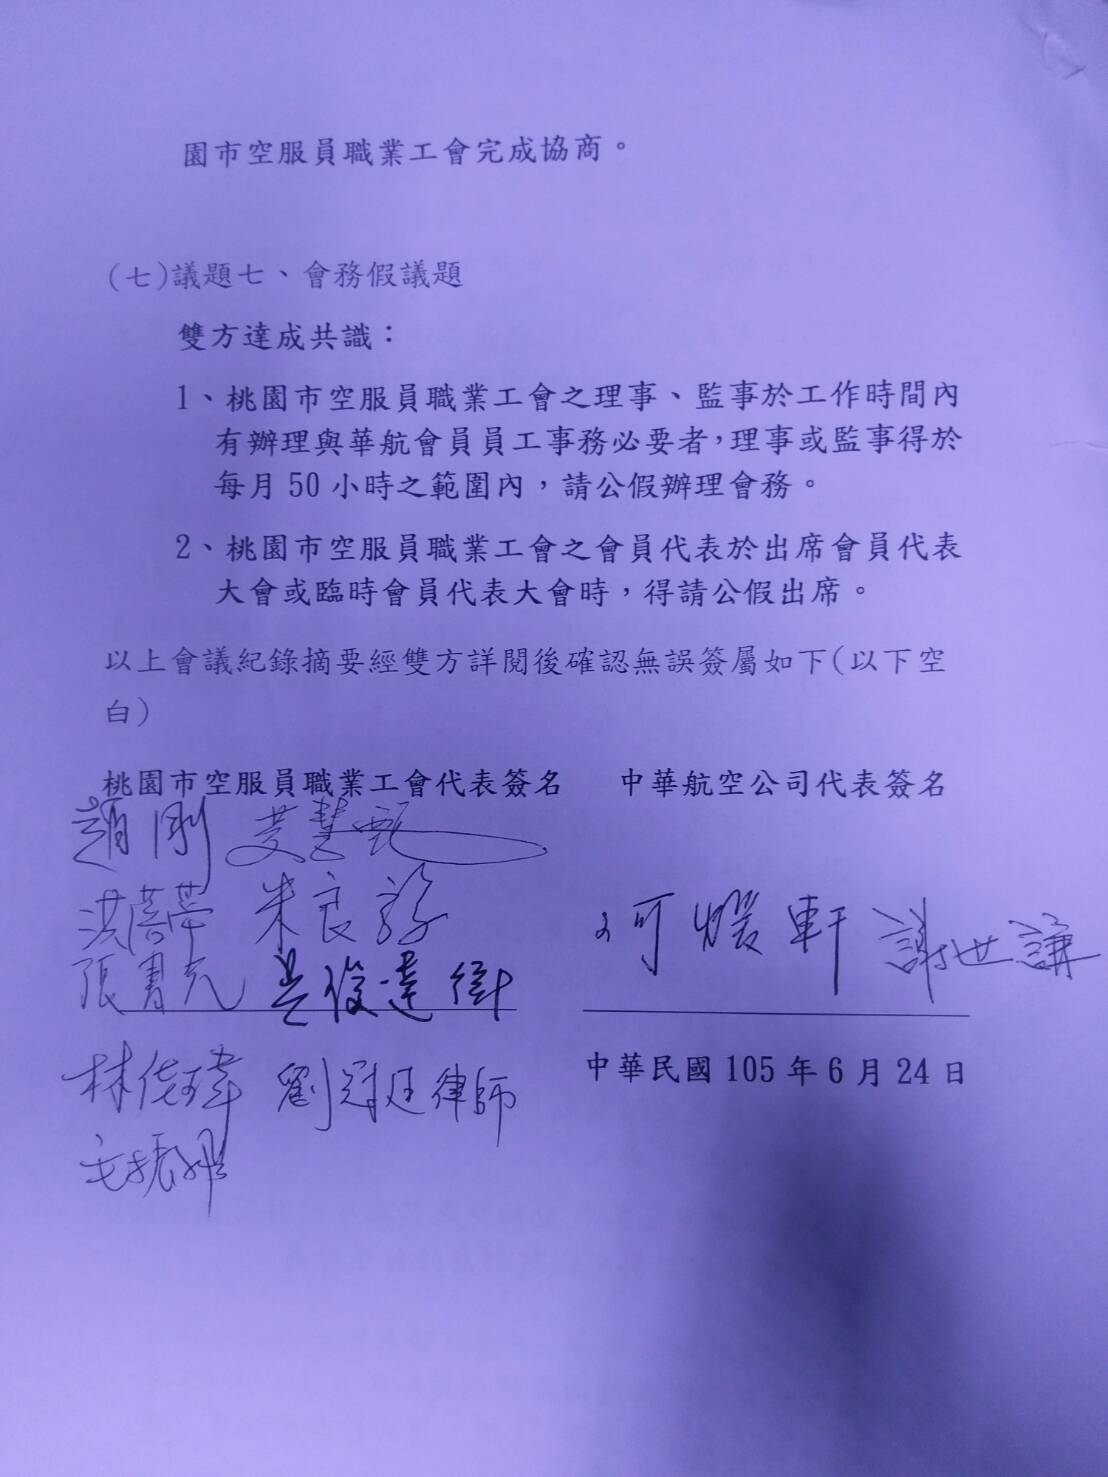 園市空服員職業工會完成協商。
(七)議題七、會務假議題
雙方達成共識：
1、桃園市空服員職業工會之理事、監事於工作時間內
有辦理與華航會員員工事務必要者，理事或監事得於
每月 50 小時之範圍內，請公假辦理會務。
2、桃園市空服員職業工會之會員代表於出席會員代表
大會或臨時會員代表大會時，得請公假出席。
以上會議紀錄摘要經雙方詳閱後確認無誤簽屬如下(以下空
白)
桃園市空服員職業工會代表簽名 中華航空公司代表簽名
趙剛
洪蓓蒂 朱良駿
張書元 吳俊達
何煖軒 謝世謙
中華民國 105 年 6 月 24 日
林佳瑋 劉冠廷律師